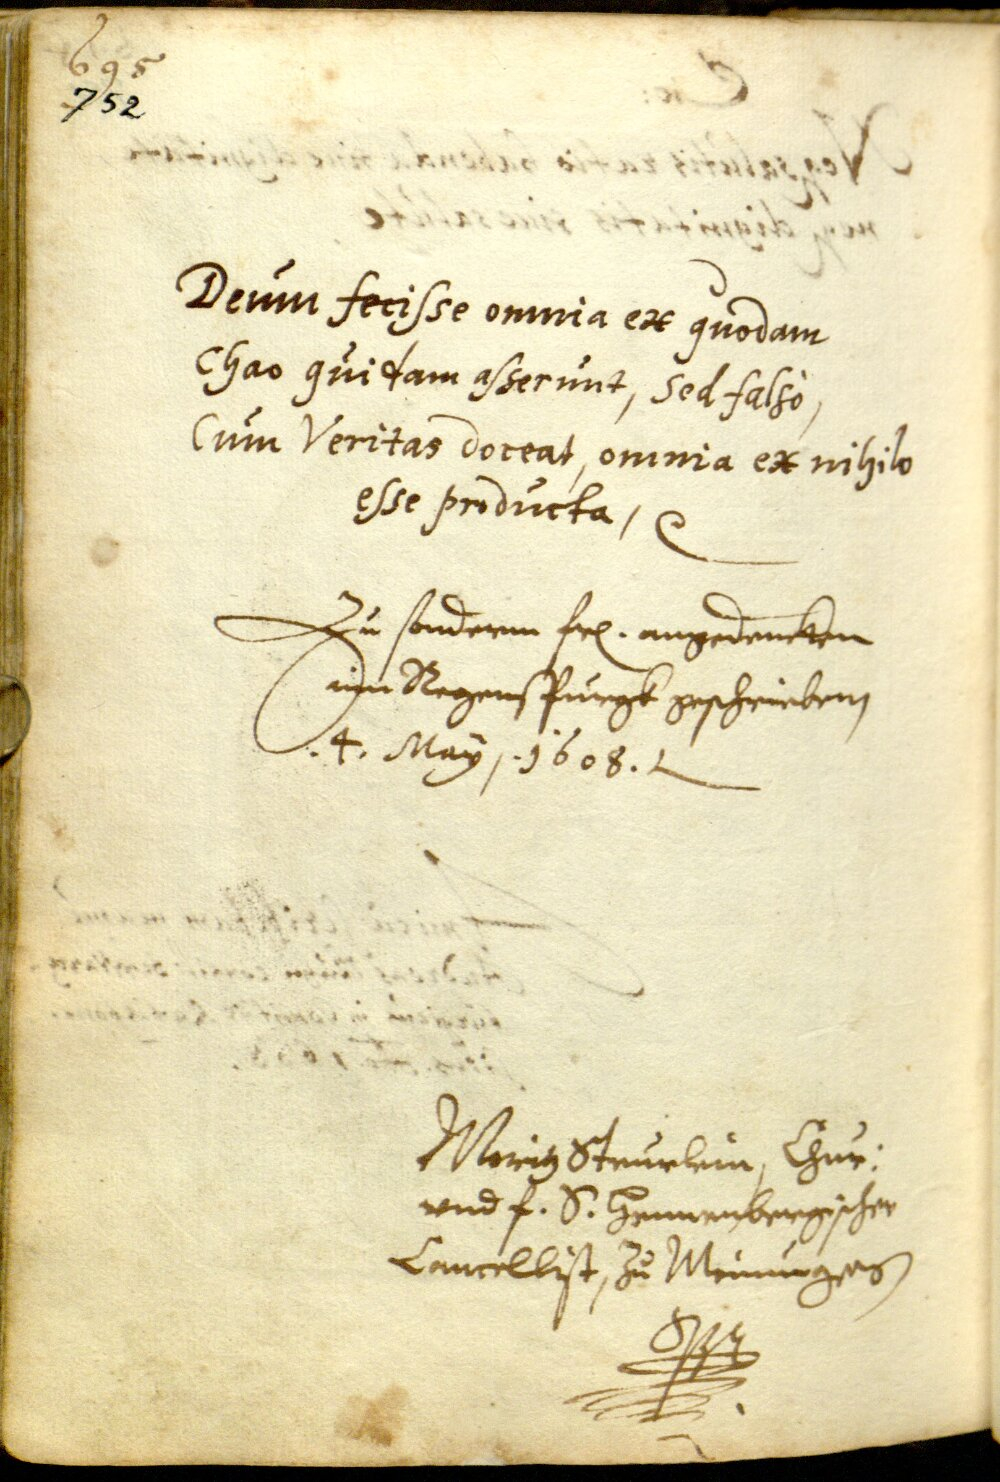 695
752
Deum fecisse omnia ex quodam
Chao quidam asserunt, sed falsò,
Cum Veritas doceat, omnia ex nihilo
esse producta,
Zu sonderm frl. angedencken
inn Regenspurgk geschrieben
.4. May, .1608.
Moritz Steurlein, Chur:
vnd f. S. Hennenbergischer
Cancellist, zu Meinungen